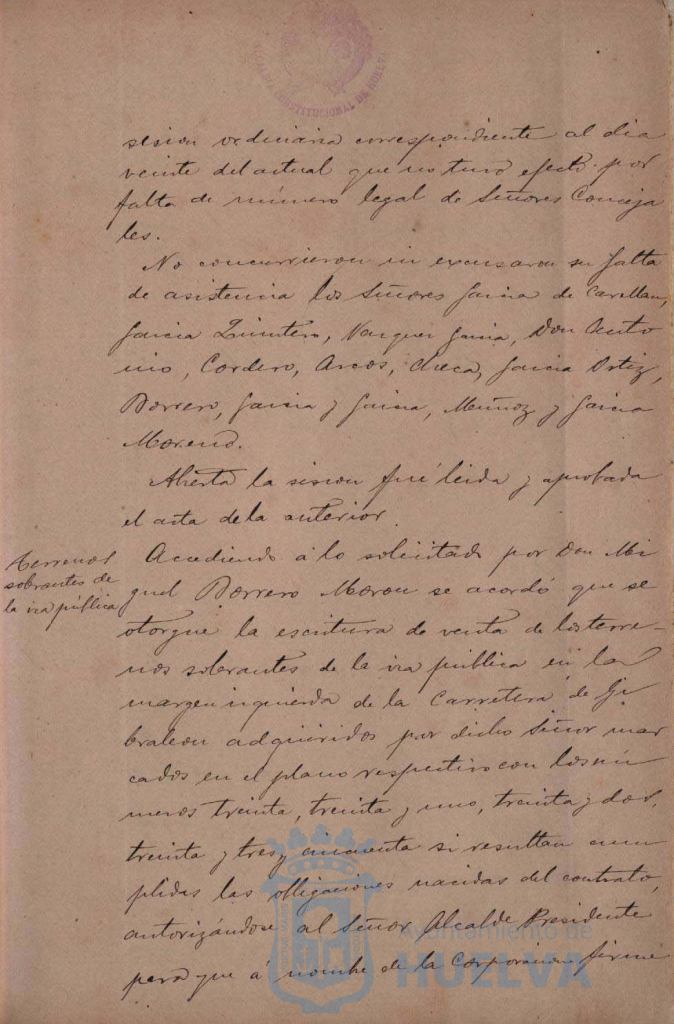 ALCALDIA CONSTITUCIONAL DE HUELVA
sesion ordinaria correspondiente al dia
veinte del actual que no tuvo efecto por
falta de número legal de Señores Conceja
les.
No concurrieron ni excusaron su falta
de asistencia los Señores Garcia de
Garcia Quintero, Vazquez Garcia, Don Anto
nio, Cordero, Arcos, Checa, Garcia Ortiz,
Borrero, Garcia y Garcia, Muñoz y Garcia
Moreno.
Abierta la sesion fué leida y aprobada
el acta de la anterior.
Terrenos
sobrantes de
la via pública
Accediendo á lo solicitado por Don Mi
guel Borrero Moron se acordó que se
otorgue la escritura de venta de los terre-
nos sobrantes de la via pública en la
margen izquierda de la Carretera de Gi
braleon adquiridos por dicho Señor mar
cados en el plano respectivo con los nú
meros treinta, treinta y uno, treinta y dos,
treinta y tres y cincuenta si resultan cum
plidas las obligaciones nacidas del contrato,
autorizándose al Señor Alcalde Presidente
para que á nombre de la Corporacion firme
Ayuntamiento de
HUELVA